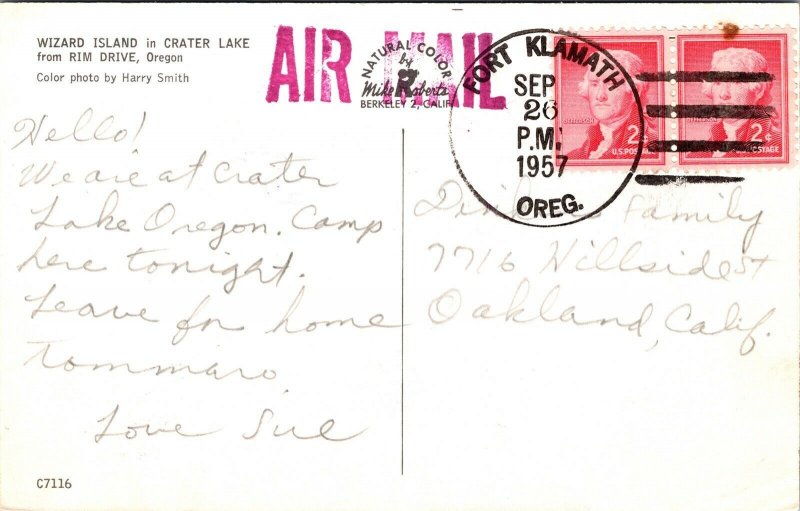 WIZARD ISLAND in CRATER LAKE
from RIM DRIVE, Oregon
Color photo by Harry Smith
AIR MAIL
NATURAL COLOR
by
Mike Roberts
BERKELEY 2, CALIF.
FORT KLAMATH
SEP
26
P.M.
1957
OREG.
JEFFERSON
2¢
U.S. POSTAGE
2¢
POSTAGE
Hello!
We are at Crater
Lake Oregon. Camp
here tonight.
Leave for home
tommaro.
Love Sue
Family
7716 Hillside St
Oakland, Calif.
C7116